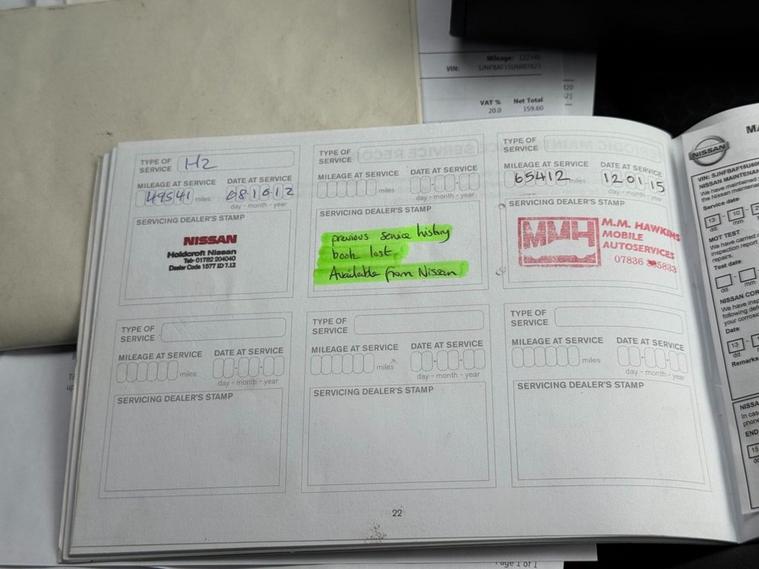 Mileage:
VIN:
VAT %
Net Total
20.0
159.60
TYPE OF SERVICE
H2
MILEAGE AT SERVICE
DATE AT SERVICE
49541 miles
08 10 12
day - month - year
SERVICING DEALER'S STAMP
NISSAN
Holdcroft Nissan
Tel: 01782 204040
TYPE OF SERVICE
MILEAGE AT SERVICE
DATE AT SERVICE
miles
day - month - year
SERVICING DEALER'S STAMP
previous service history
book lost.
Available from Nissan
TYPE OF SERVICE
MILEAGE AT SERVICE
DATE AT SERVICE
65412 miles
12 01 15
day - month - year
SERVICING DEALER'S STAMP
MMH
M.M. HAWKINS
MOBILE
AUTOSERVICES
07836
TYPE OF SERVICE
MILEAGE AT SERVICE
DATE AT SERVICE
miles
day - month - year
SERVICING DEALER'S STAMP
TYPE OF SERVICE
MILEAGE AT SERVICE
DATE AT SERVICE
miles
day - month - year
SERVICING DEALER'S STAMP
TYPE OF SERVICE
MILEAGE AT SERVICE
DATE AT SERVICE
miles
day - month - year
SERVICING DEALER'S STAMP
22
NISSAN
NISSAN MAINTENAN
We have maintained
the Nissan maintenan
Service date
MOT TEST
We have carried
inspection report
repairs.
Test date
NISSAN COR
We have insp
following def
your corrosi
Date
Remarks
NISSA
In cas
phon
END
Page 1 of 1